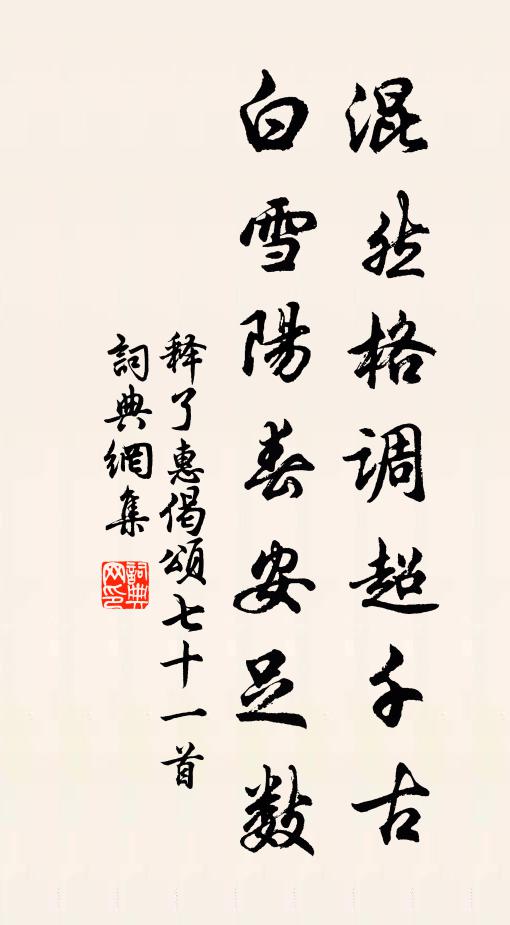 混然格调超千古
白雪陽春安足数
释了惠偈頌七十一首
詞典網集
詞典
网印